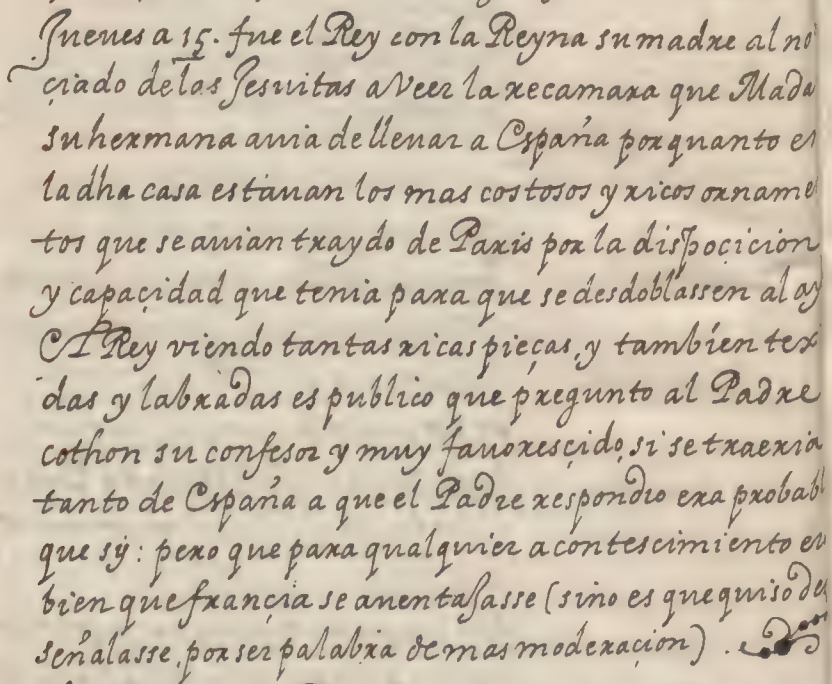 Jueues a 15. fue el Rey con la Reyna su madre al no
çiado de los Jesuitas a Veer la recamara que Mada
su hermana auia de lleuar a España por quanto en
la dha casa estauan los mas costosos y ricos orname
tos que se auian traydo de Paris por la dispoçiçion
y capaçidad que tenia para que se desdoblassen al ay
El Rey viendo tantas ricas pieças, y tambien tex
das y labradas es publico que pregunto al Padre
cothon su confesor y muy fauoresçido, si se traeria
tanto de España a que el Padre respondio era probabl
que sy: pero que para qualquier acontescimiento er
bien que françia se auentajasse (sino es que quiso de
señalasse, por ser palabra de mas moderaçion).